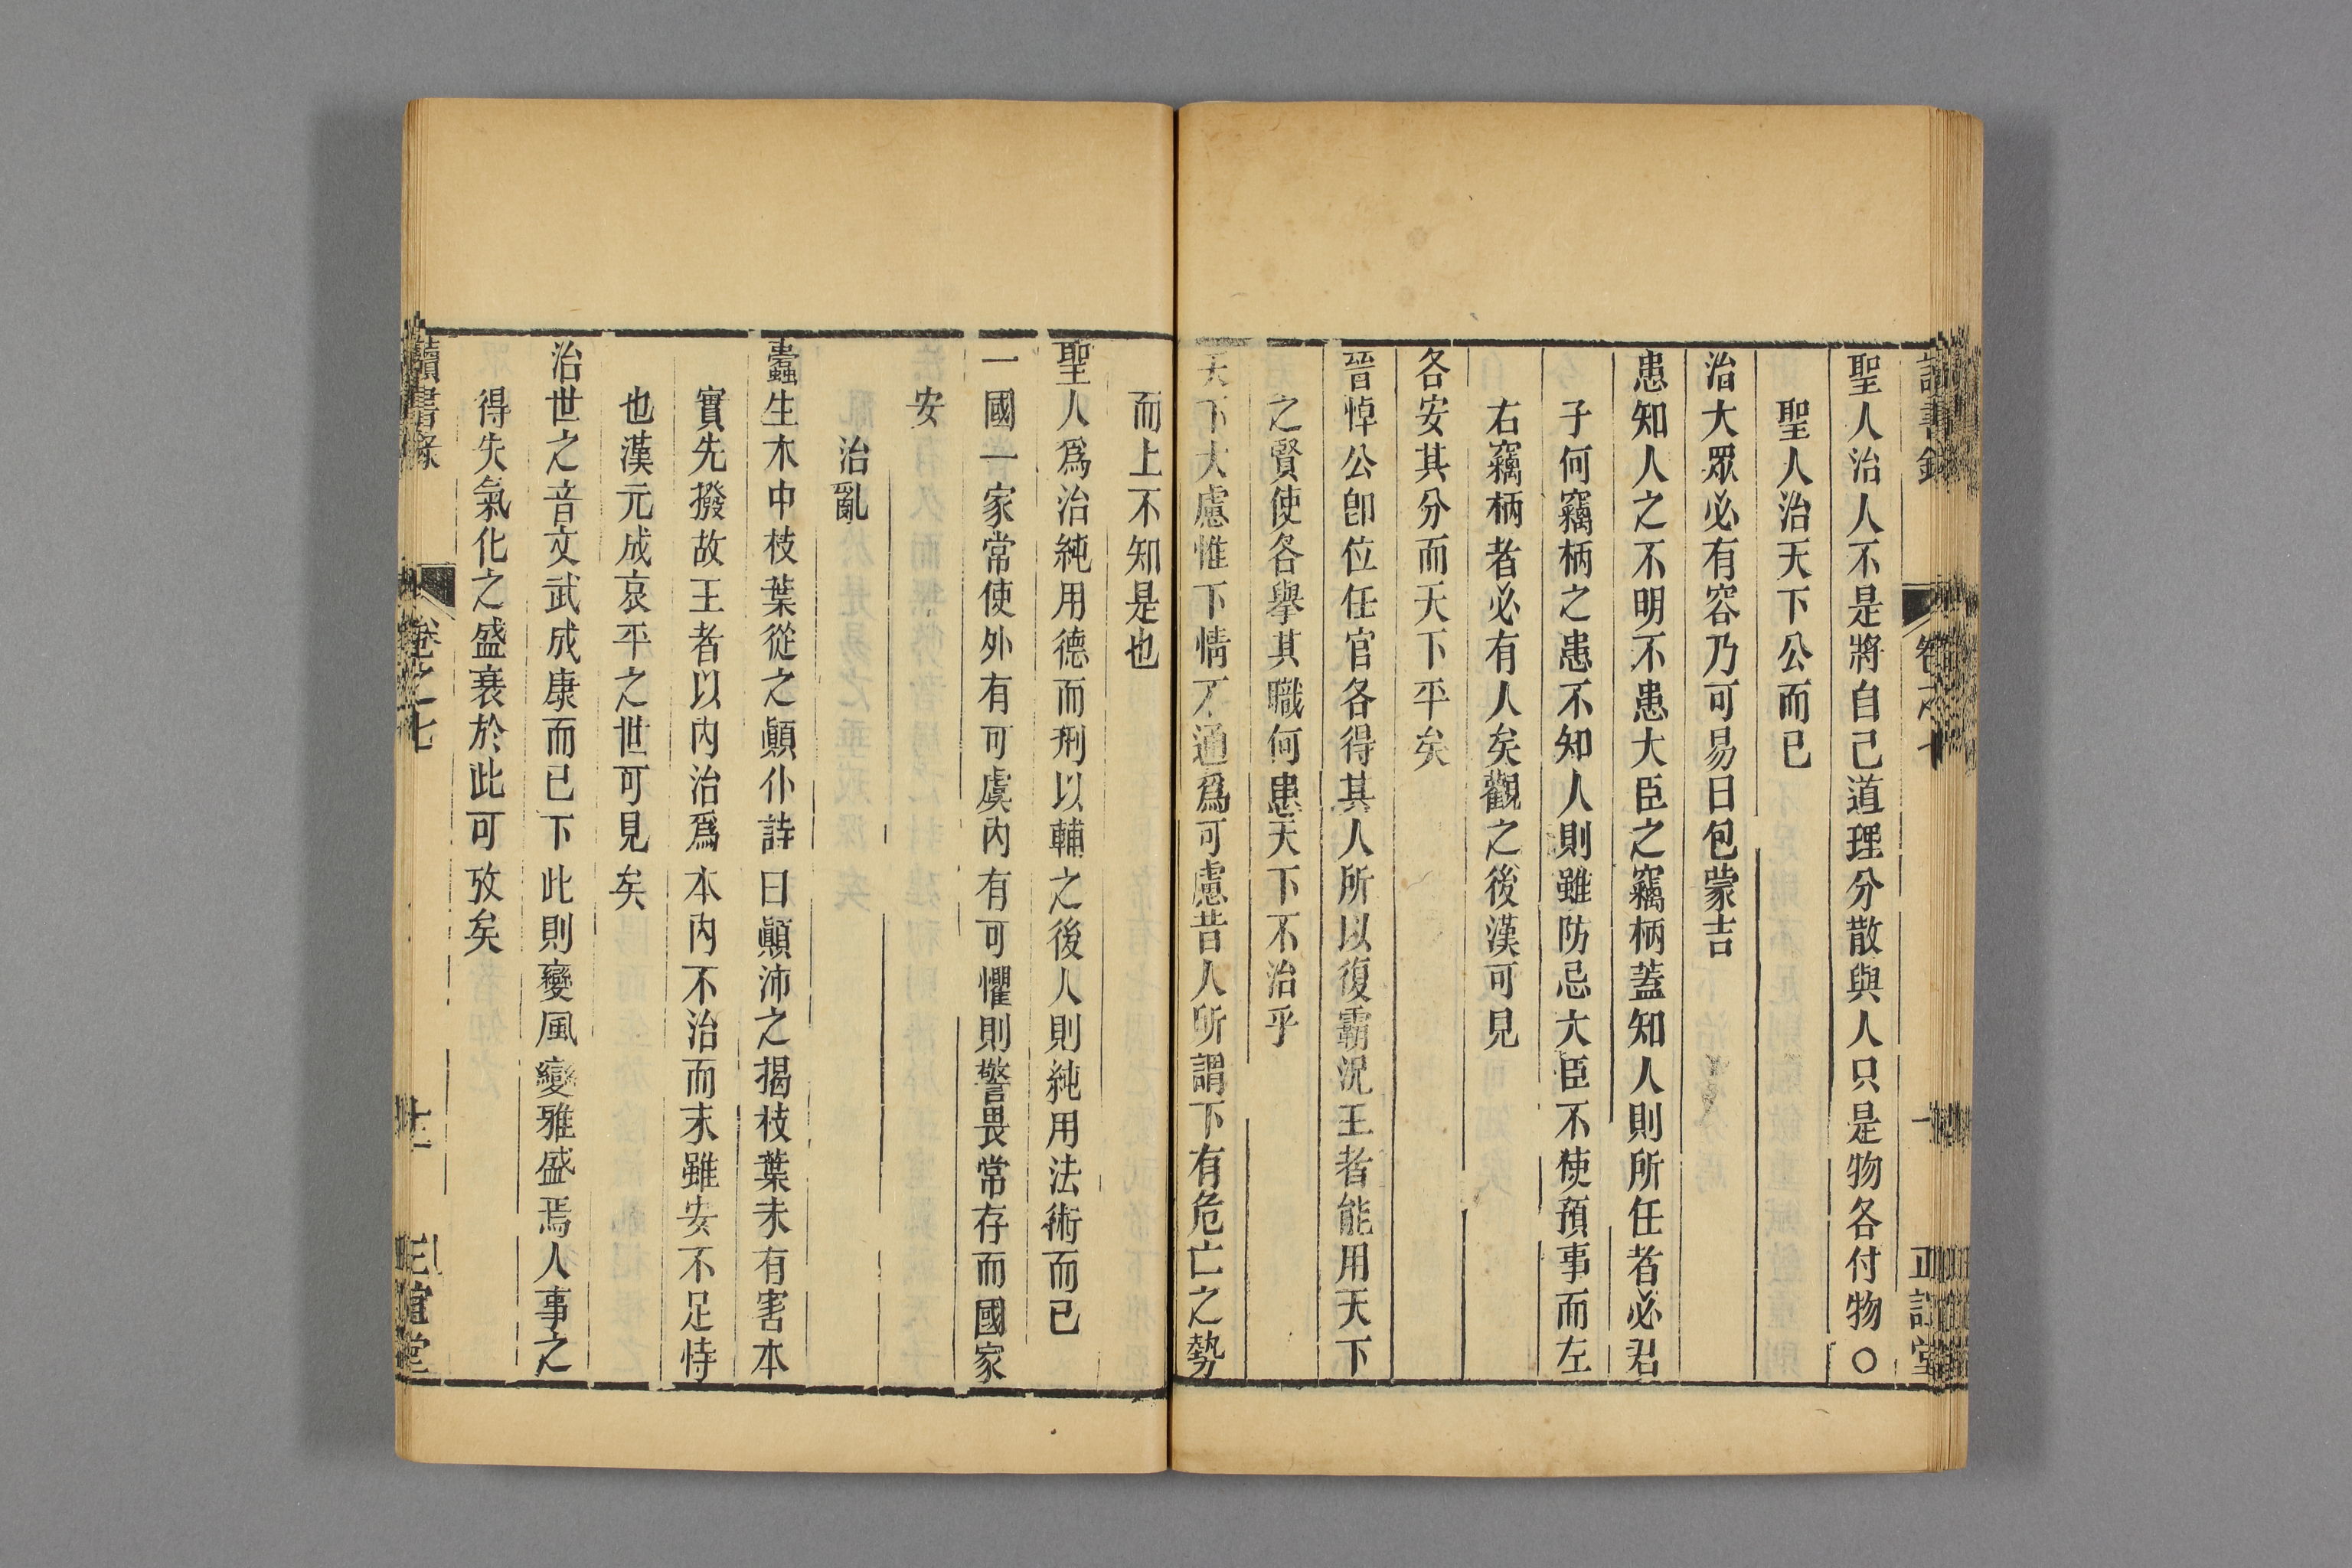 聖人治人不是將自己道理分散與人只是物各付物○
聖人治天下公而已
治大眾必有容乃可易曰包蒙吉
患知人之不明不患大臣之竊柄蓋知人則所任者必君
子何竊柄之患不知人則雖防忌大臣不使預事而左
右竊柄者必有人矣觀之後漢可見
各安其分而天下平矣
晉悼公卽位任官各得其人所以復霸況王者能用天下
之賢使各舉其職何患天下不治乎
天下大慮惟下情不通爲可慮昔人所謂下有危亡之勢
而上不知是也
聖人爲治純用德而刑以輔之後人則純用法術而已
一國一家常使外有可虞內有可懼則警畏常存而國家
安
治亂
蠹生木中枝葉從之顚仆詩曰顚沛之揭枝葉未有害本
實先撥故王者以內治爲本內不治而末雖安不足恃
也漢元成哀平之世可見矣
治世之音文武成康而已下此則變風變雅盛焉人事之
得失氣化之盛衰於此可攷矣
讀書錄 卷之七 十一 正誼堂